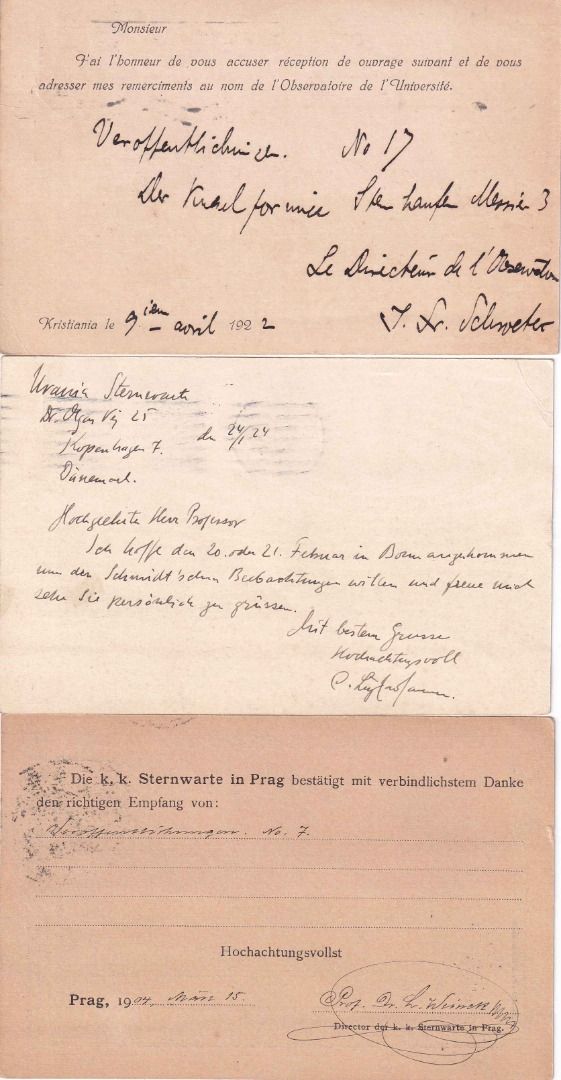 Monsieur
J'ai l'honneur de vous accuser réception de ouvrage suivant et de vous
adresser mes remerciments au nom de l'Observatoire de l'Université.
Veröffentlichungen. No 17
Der Kugelförmige Sternhaufen Messier 3
Le Directeur de l'Observatoire
J. Fr. Schroeter
Kristiania le 9ien avril 1922
Urania Sternwarte
Dr. Olgas Vej 25
Kopenhagen F. den 24/1 24
Dänemark.
Hochgeehrter Herr Professor
Ich hoffe den 20. oder 21. Februar in Bonn angekommen
um den Schmidt'schen Beobachtungen willen und freue mich
sehr Sie persönlich zu grüssen.
Mit bestem Grusse
Hochachtungsvoll
C.
Die k. k. Sternwarte in Prag bestätigt mit verbindlichstem Danke
den richtigen Empfang von:
Veröffentlichungen. No. 7.
Hochachtungsvollst
Prag, 1904. März 15.
Prof. Dr. L. Weinek
Director der k. k. Sternwarte in Prag.